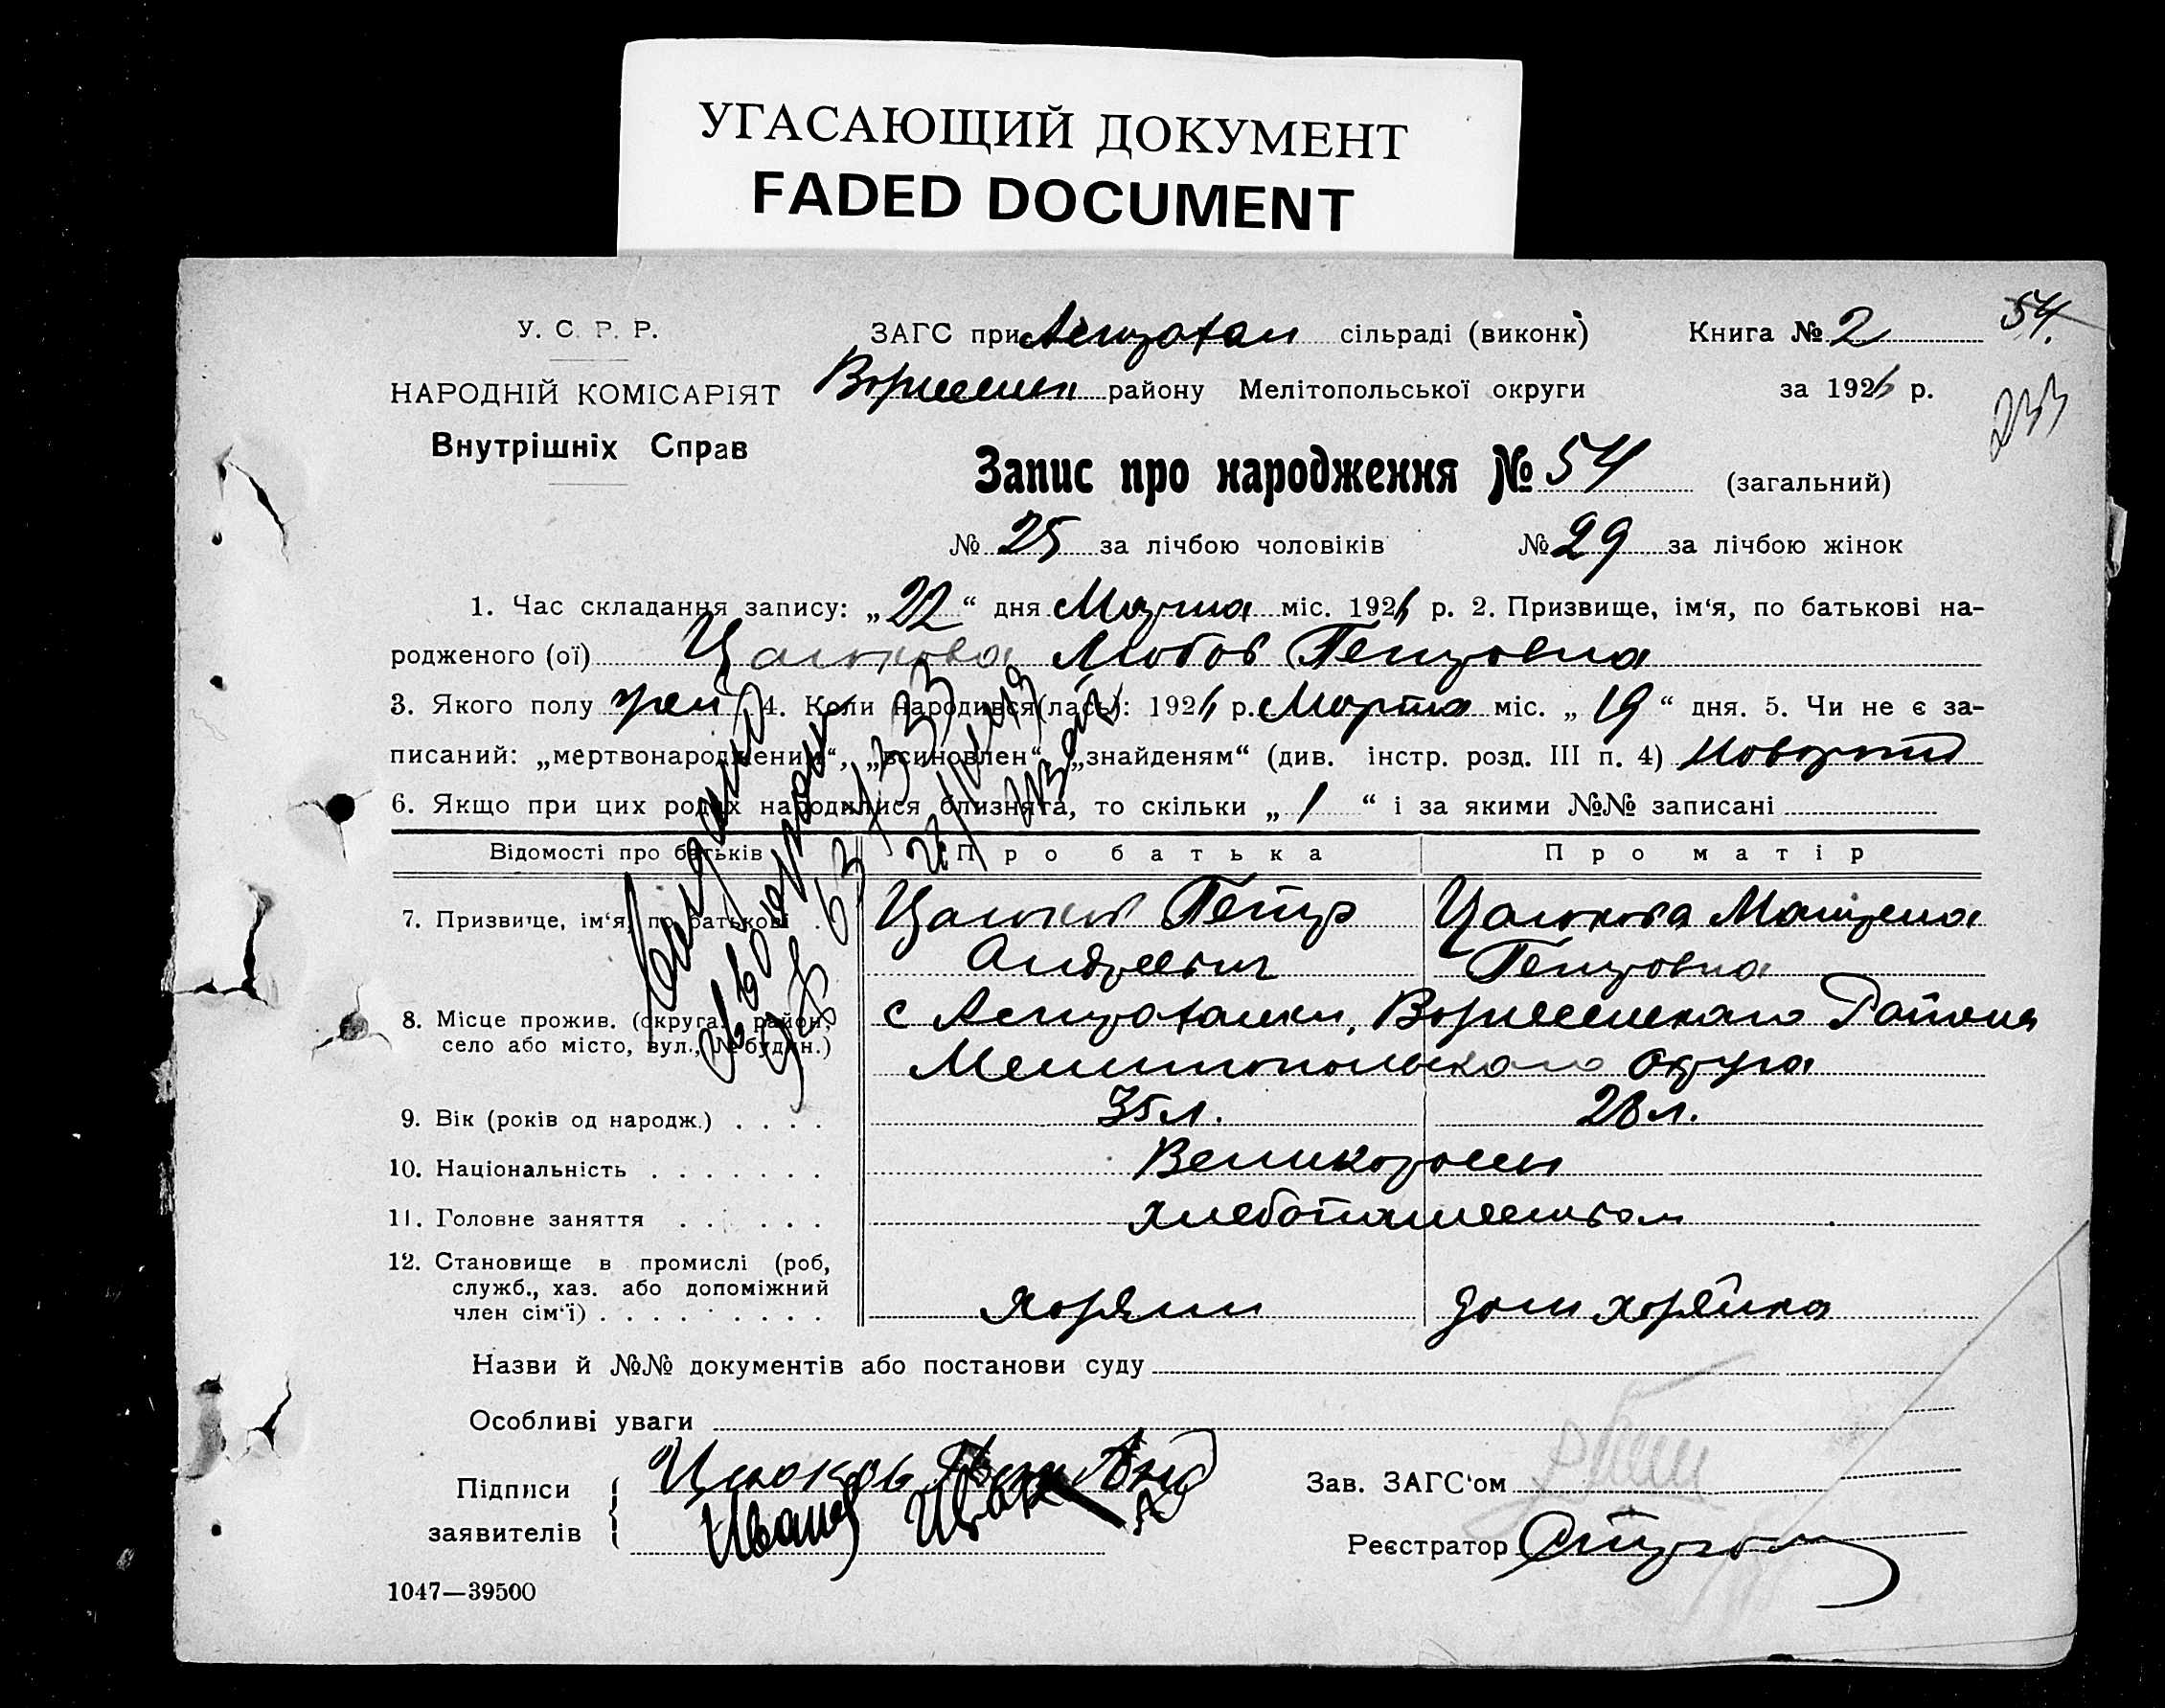 УГАСАЮЩИЙ ДОКУМЕНТ
FADED DOCUMENT
У. С. Р. Р.
ЗАГС при Астрахан сільраді (виконк)
Книга № 2
54.
НАРОДНІЙ КОМІСАРІЯТ
району Мелітопольської округи
за 1926 р.
233
Внутрішніх Справ
Запис про народження № 54 (загальний)
№ 25 за лічбою чоловіків № 29 за лічбою жінок
1. Час складання запису: „22“ дня Марта міс. 1926 р. 2. Призвище, ім‘я, по батькові на-
родженого (ої) Любов Петровна
3. Якого полу жен 4. Коли народився(лась): 1926 р. Марта міс. „19“ дня. 5. Чи не є за-
писаний: „мертвонародженим“, „всиновлен“, „знайденям“ (див. інстр. розд. III п. 4)
6. Якщо при цих родах народилися близнята, то скільки „1“ і за якими №№ записані
Відомості про батьків
Про батька
Про матір
7. Призвище, ім‘я, по батькові
Петр
Матрена
Андреевич
Петровна
8. Місце прожив. (округа, район,
село або місто, вул., № будин.)
с Астраханки, Района
Мелитопольского округа
9. Вік (років од народж.)
35 л.
28 л.
10. Національність
Великороссы
11. Головне заняття
хлебопашеством
12. Становище в промислі (роб,
служб., хаз. або допоміжний
член сім‘ї)
хозяин
дом хозяйка
Назви й №№ документів або постанови суду
Особливі уваги
Підписи
заявителів
Иванов
Зав. ЗАГС‘ом
Реєстратор
1047—39500